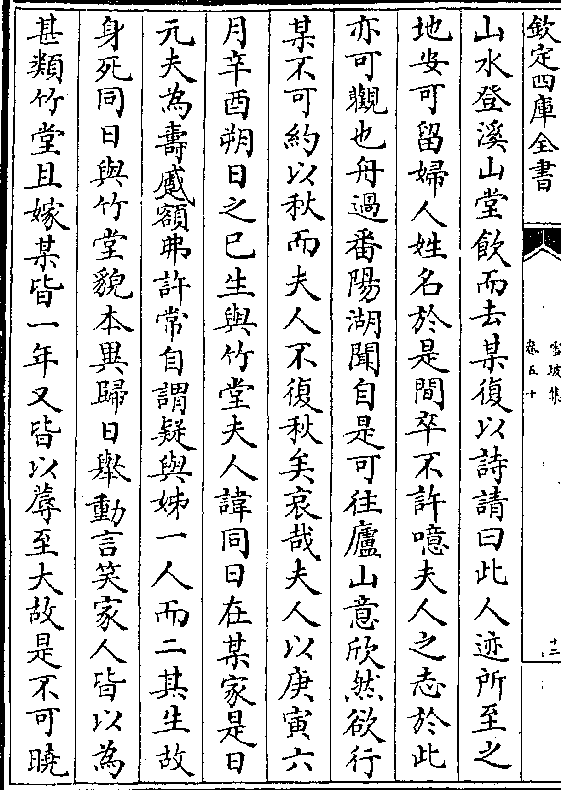 欽定四庫全書
雪坡集
卷五十
十三
山水登溪山堂飲而去某復以詩請曰此人迹所至之
地安可留婦人姓名於是間卒不許噫夫人之志於此
亦可觀也舟過番陽湖聞自是可往廬山意欣然欲行
某不可約以秋而夫人不復秋矣哀哉夫人以庚寅六
月辛酉朔日之巳生與竹堂夫人諱同日在某家是日
元夫為壽蹙額弗許常自謂疑與姊一人而二其生故
身死同日與竹堂貌本異歸日舉動言笑家人皆以為
甚類竹堂且嫁某皆一年又皆以蓐至大故是不可曉